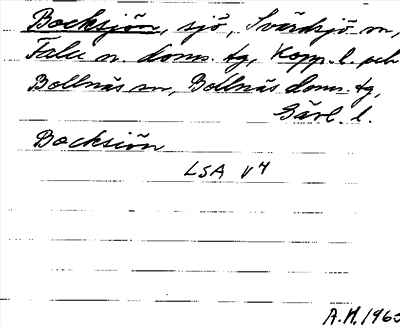 Bocksjön, sjö, Svärdsjö sn,
Falu n. doms. tg, Kopp. l. och
Bollnäs sn, Bollnäs doms. tg,
Gävl. l.
Bocksiön
LSA V4
A.H. 1965